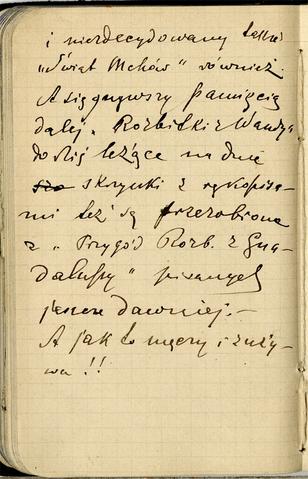 i niezdecydowany także
„Świat Mchów" również.
A sięgnąwszy pamięcią
dalej „Rozbitki z Wandy"
do dziś leżące na dnie
skrzynki z rękopisa-
mi też są przerobione
z „Przygód Rozb. z Gua-
dalupy" pisanych
jeszcze dawniej.–
A jak to męczy i zuży-
wa!!